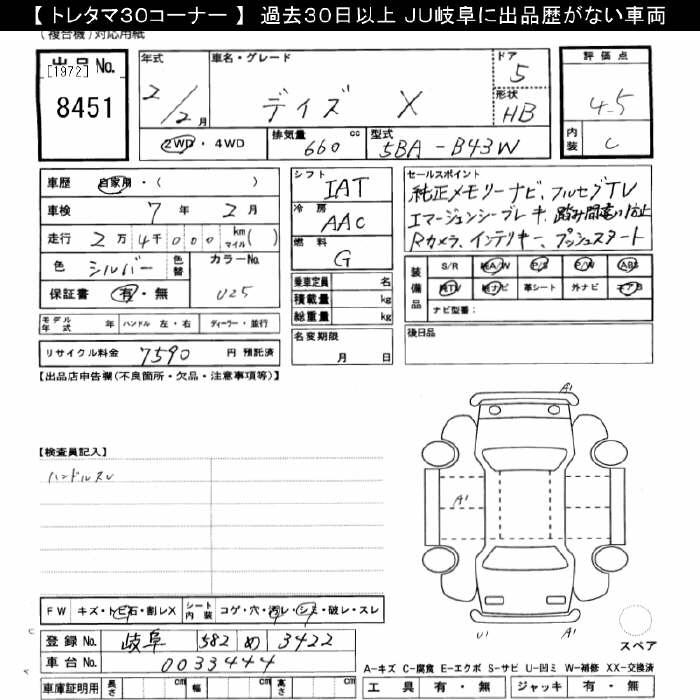 【 トレタマ30コーナー 】 過去30日以上 JU岐阜に出品歴がない車両
(複合機)対応用紙
出品 No.
[1972]
8451
年式
2/2月
車名・グレード
デイズ X
ドア
5
形状
HB
評価点
4.5
内装
C
2WD・4WD
排気量
660 cc
型式
5BA-B43W
車歴 自家用・( )
車検 7年 2月
走行 2万4千000 km マイル( )
色 シルバー 色替
カラーNo.
U25
保証書 有・無
シフト
IAT
冷房
AAC
燃料
G
乗車定員 名
積載量 kg
総重量 kg
セールスポイント
純正メモリーナビ、フルセグTV
エマージェンシーブレーキ、踏み間違い防止
Rカメラ、インテリキー、プッシュスタート
装備品
S/R 純A/W P/S P/W ABS
純TV 純ナビ 革シート 外ナビ エアB
ナビ型番:
モデル年式 年 ハンドル 左・右 ディーラー・並行
名変期限
月 日
後日品
リサイクル料金 7590 円 預託済
【出品店申告欄(不良箇所・欠品・注意事項等)】
【検査員記入】
ハンドルスレ
A1
A1
U1
A1
FW キズ・トビ石・割レX
シート内装 コゲ・穴・汚レ・シミ・破レ・スレ
登録 No. 岐阜 582 め 3422
車台 No. 0033444
車庫証明用 長さ cm 幅 cm 高さ cm
スペア
A-キズ C-腐食 E-エクボ S-サビ U-凹ミ W-補修 XX-交換済
工具 有・無 ジャッキ 有・無